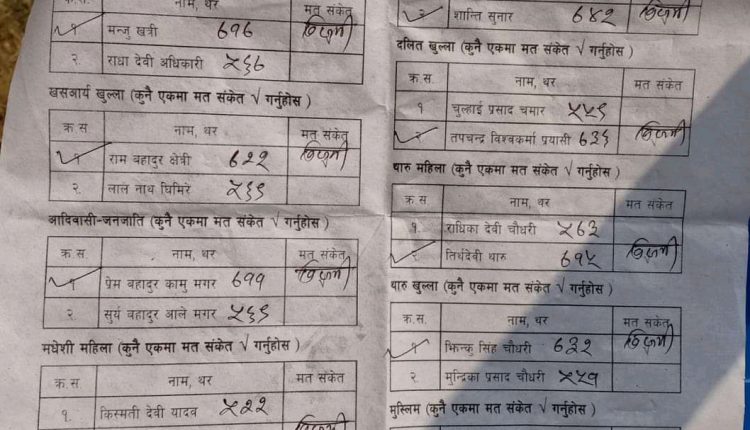 नाम, थर
मत संकेत
१ मन्जु खत्री ६१६ विजयी
२. राधा देवी अधिकारी ५६७
खसआर्य खुल्ला (कुनै एकमा मत संकेत √ गर्नुहोस )
क्र.स. नाम, थर मत संकेत
१ राम बहादुर क्षेत्री ६२२ विजयी
२. लाल नाथ घिमिरे ५६९
आदिवासी-जनजाति (कुनै एकमा मत संकेत √ गर्नुहोस )
क्र.स. नाम, थर मत संकेत
१ प्रेम बहादुर कामु मगर ६११ विजयी
२ सुर्य बहादुर आले मगर ५६९
मधेशी महिला (कुनै एकमा मत संकेत √ गर्नुहोस )
क्र.स. नाम, थर मत संकेत
१. किस्मती देवी यादव ५२२
२ शान्ति सुनार ६४२ विजयी
दलित खुल्ला (कुनै एकमा मत संकेत √ गर्नुहोस )
क्र.स नाम, थर मत संकेत
१ चुल्हाई प्रसाद चमार ५५९
२ तपचन्द्र विश्वकर्मा प्रयासी ६३६ विजयी
थारु महिला (कुनै एकमा मत संकेत √ गर्नुहोस )
क्र.स नाम, थर मत संकेत
१. राधिका देवी चौधरी ५६३
२ तिर्थदेवी थारु ६१५ विजयी
थारु खुल्ला (कुनै एकमा मत संकेत √ गर्नुहोस )
क्र.स. नाम, थर मत संकेत
१ झिन्कु सिंह चौधरी ६३२ विजयी
२ मुन्द्रिका प्रसाद चौधरी ५५१
मुस्लिम (कुनै एकमा मत संकेत √ गर्नुहोस )